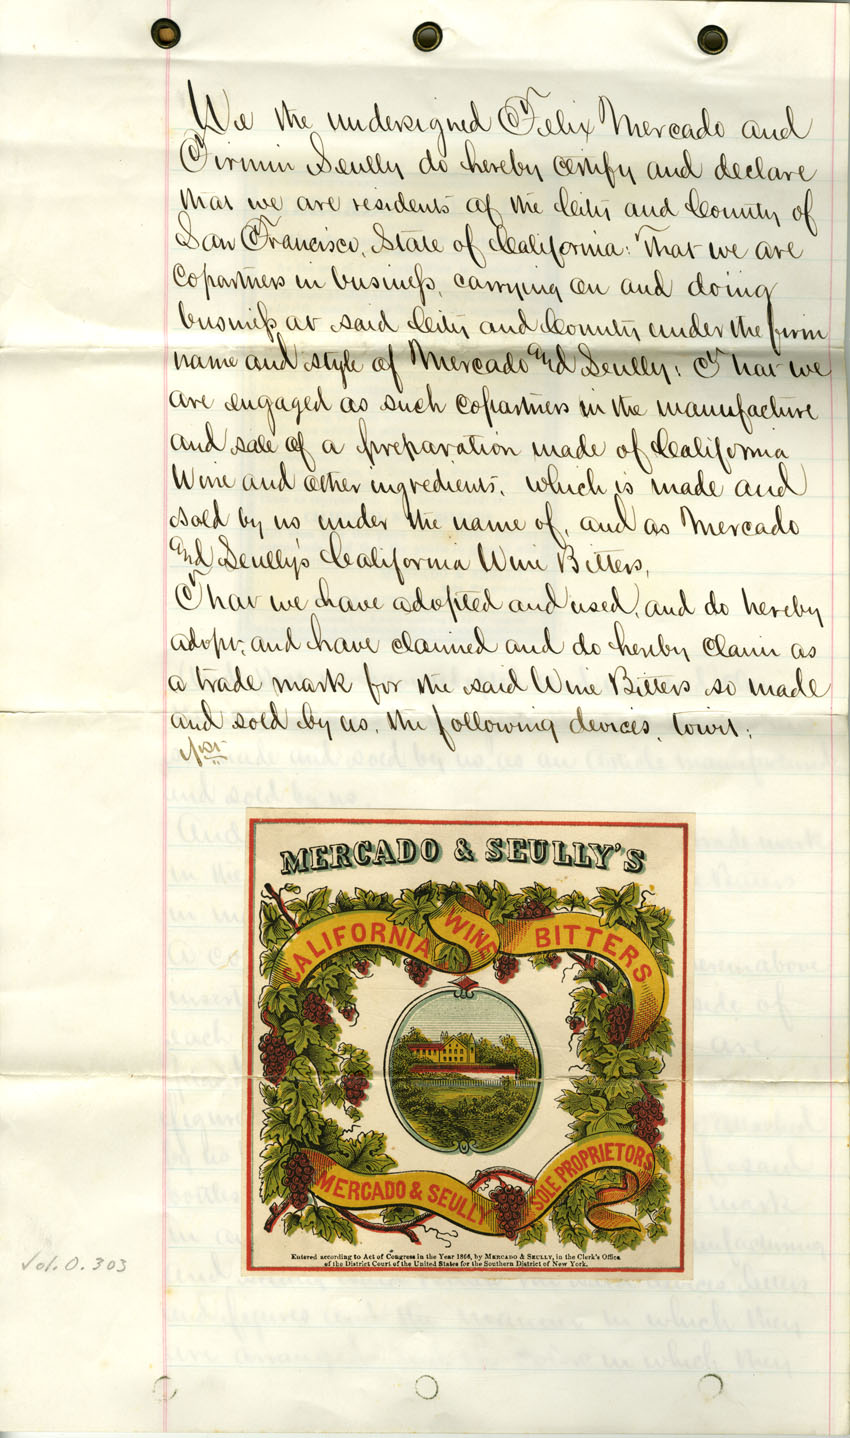 We the undersigned Felix Mercado and
Firmin Seully do hereby certify and declare
that we are residents of the City and County of
San Francisco, State of California: That we are
copartners in business, carrying on and doing
business at said City and County under the firm
name and style of Mercado And Seully: That we
are engaged as such copartners in the manufacture
and sale of a preparation made of California
Wine and other ingredients, which is made and
sold by us under the name of, and as Mercado
And Seully's California Wine Bitters,
That we have adopted and used, and do hereby
adopt, and have claimed and do hereby claim as
a trade mark for the said Wine Bitters so made
and sold by us, the following devices, towit:
1st
MERCADO & SEULLY'S
CALIFORNIA WINE BITTERS
MERCADO & SEULLY SOLE PROPRIETORS
Entered according to Act of Congress in the Year 1866, by MERCADO & SEULLY, in the Clerk's Office
of the District Court of the United States for the Southern District of New York.
Vol. O. 303